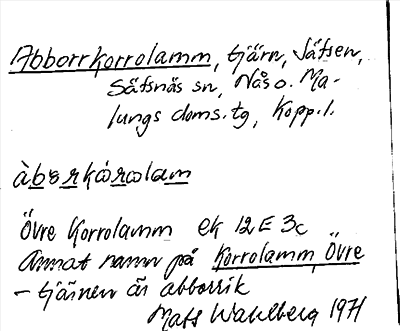 Abborrkorrolamm, tjärn, Säfsen,
Säfsnäs sn, Nås o. Ma-
lungs doms.tg, Kopp.l.
àbɔrkårωlam
Övre Korrolamm ek 12E 3c
Annat namn på Korrolamm, Övre
– tjärnen är abborrik
Mats Wahlberg 1971